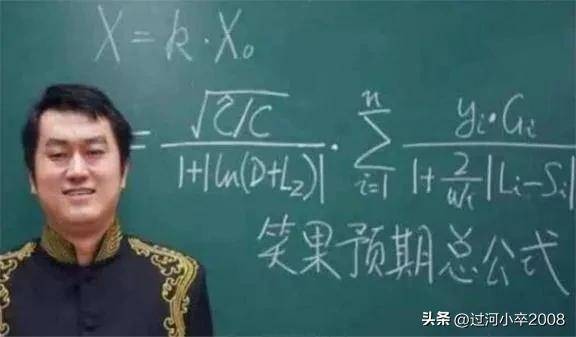 X = k · X₀
= √(Ĉ/C) / (1+|ln(D+L₂)|) · Σ_{i=1}^{n} (yᵢ·Gᵢ) / (1+(2/wᵢ)|Lᵢ-Sᵢ|)
笑果预期总公式
头条 @过河小卒2008